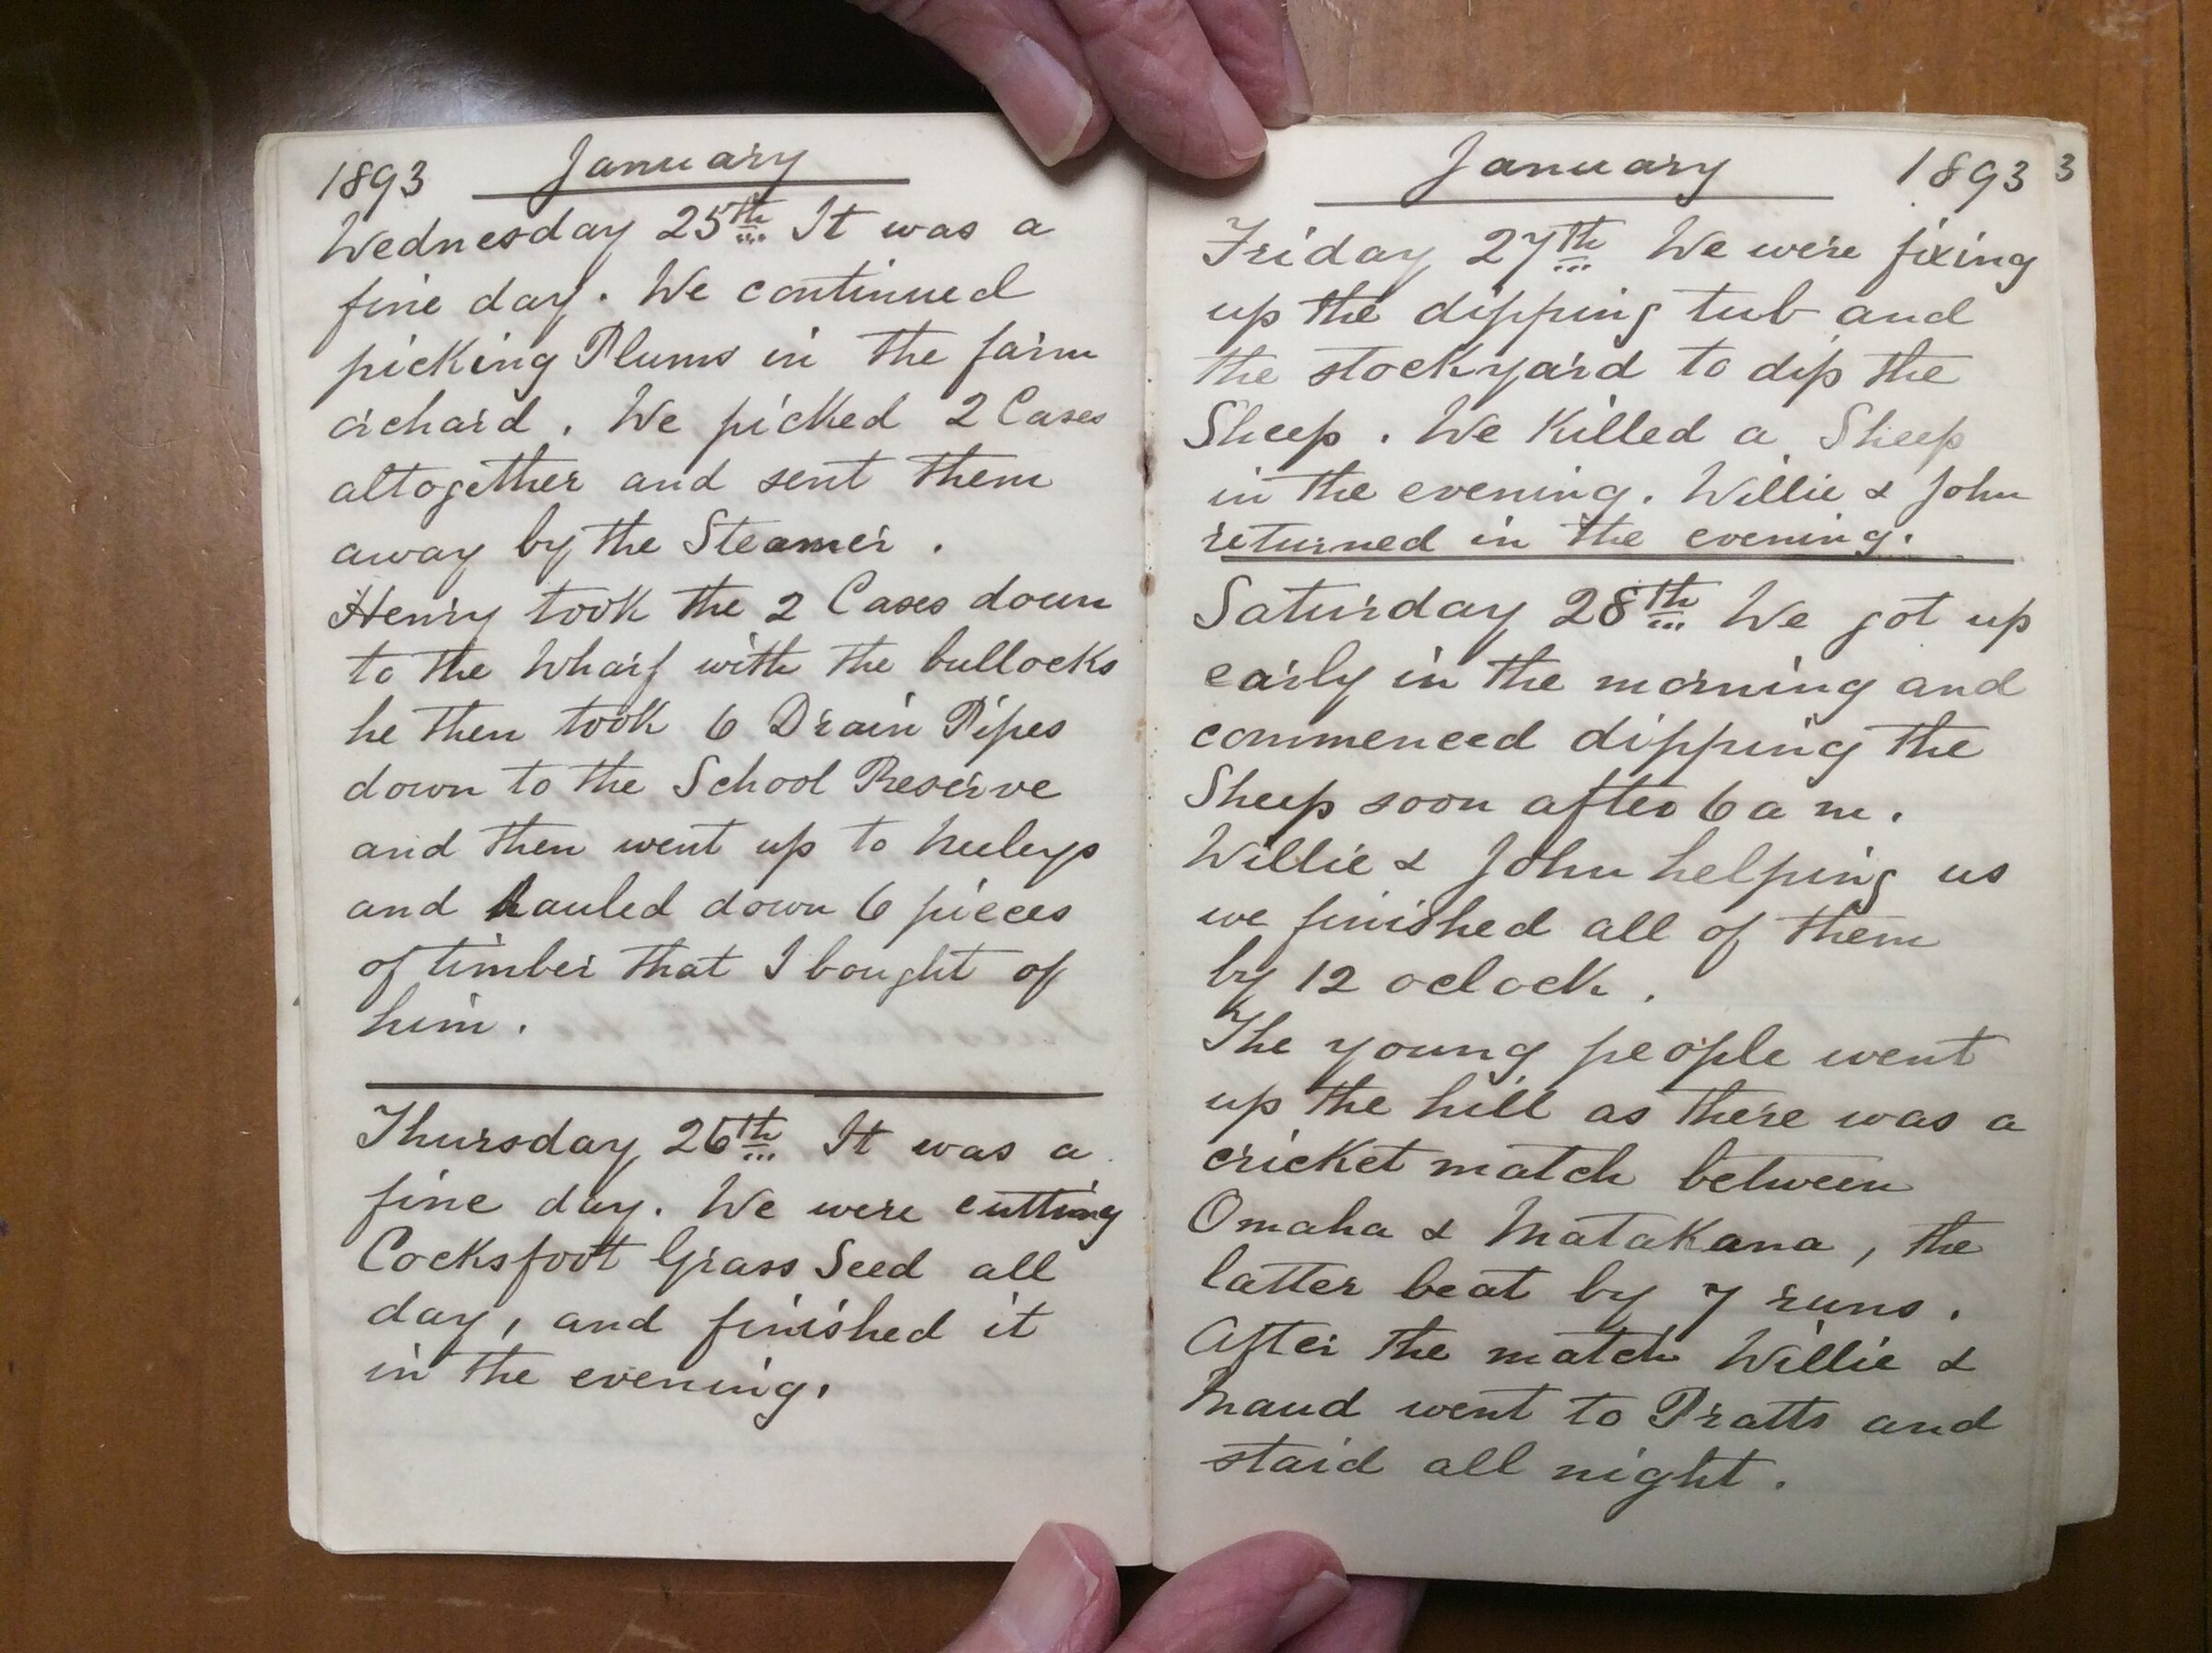 1893 January
Wednesday 25th It was a
fine day. We continued
picking Plums in the farm
orchard. We picked 2 Cases
altogether and sent them
away by the Steamer.
Henry took the 2 Cases down
to the Wharf with the bullocks
he then took 6 Drain Pipes
down to the School Reserve
and then went up to
and hauled down 6 pieces
of timber that I bought of
him.
Thursday 26th It was a
fine day. We were cutting
Cocksfoot Grass Seed all
day, and finished it
in the evening.
January 1893
3
Friday 27th We were fixing
up the dipping tub and
the stockyard to dip the
Sheep. We Killed a Sheep
in the evening. Willie & John
returned in the evening.
Saturday 28th We got up
early in the morning and
commenced dipping the
Sheep soon after 6 a m.
Willie & John helping us
we finished all of them
by 12 oclock.
The young people went
up the hill as there was a
cricket match between
Omaha & Matakana, the
latter beat by 7 runs.
After the match Willie &
Maud went to Pratts and
staid all night.